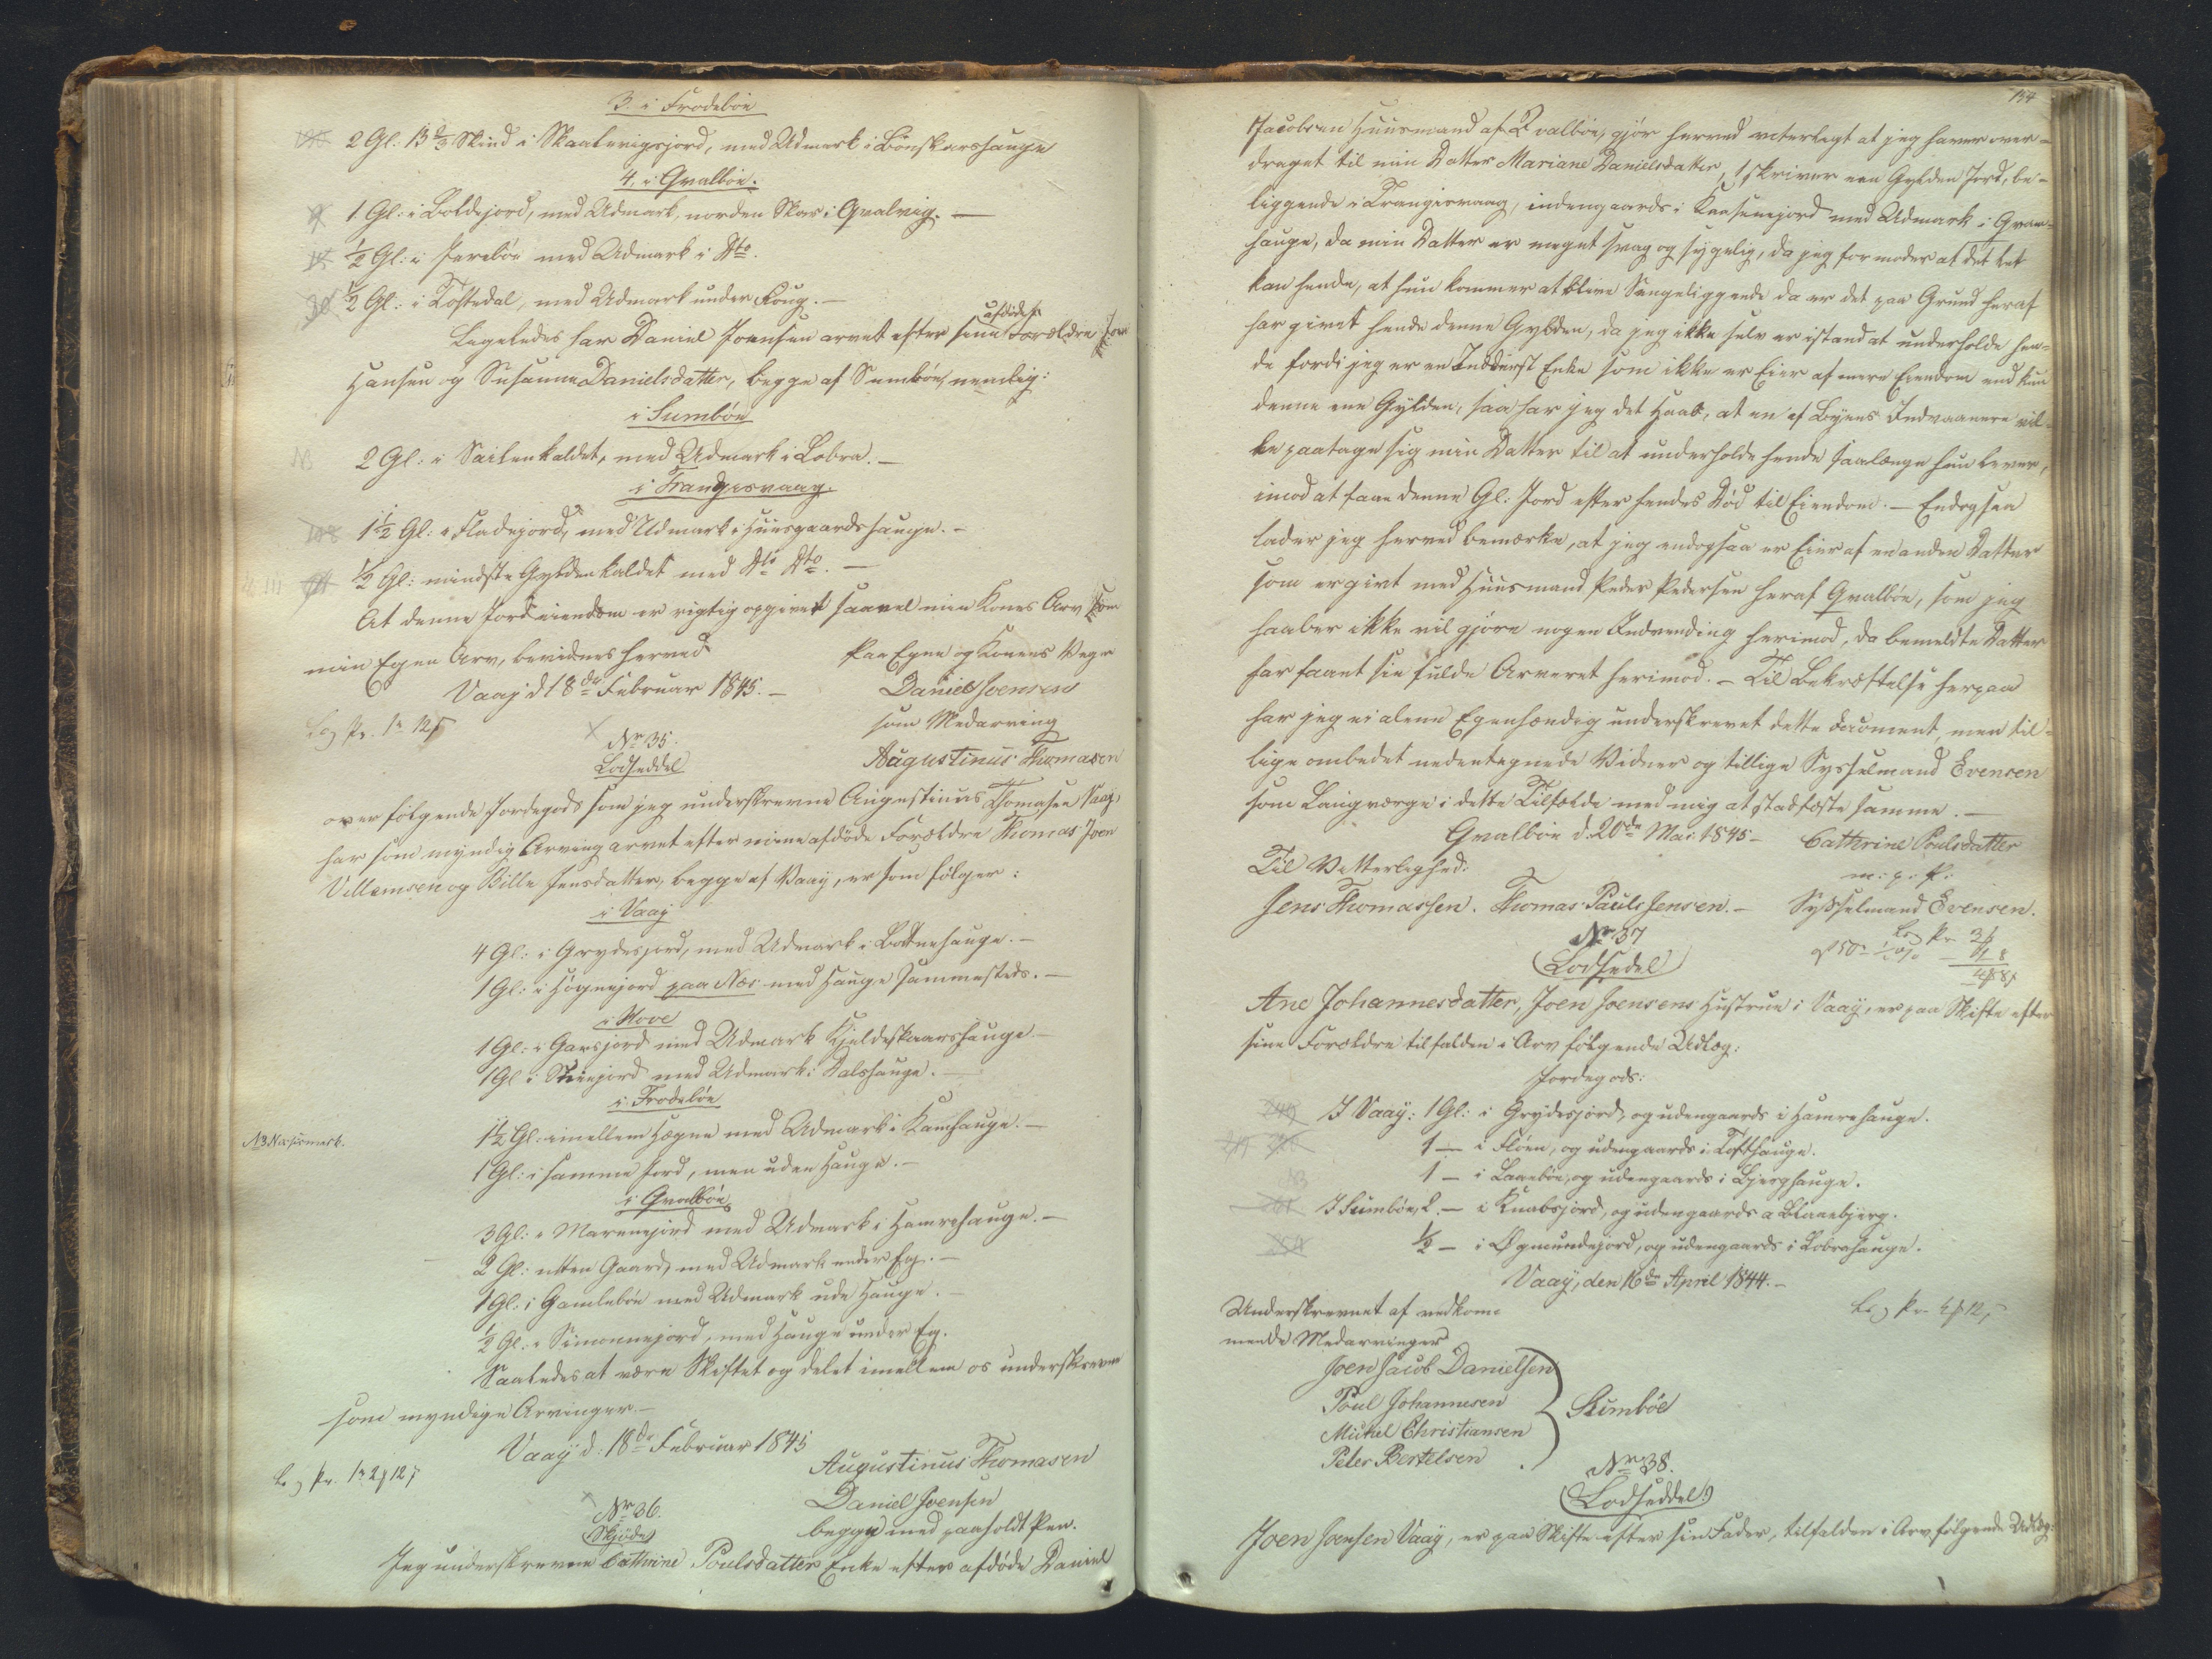 3. i Frodeboe
2 Gl: 13 2/3 Skind i Skaalevigsjord, med Udmark i Bønskarshauge
4, i Qvalbøe.
1 Gl: i Boldejord, med Udmark, norden Skar i Qvalvig. —
1/2 Gl: i Jerebøe med Udmark i Dto.
1/2 Gl: i Toftedal, med Udmark under Roug. —
Ligeledes har Daniel Joensen arvet efter sine afdøde Forældre Joen
Hansen og Susanne Danielsdatter, begge af Sumbøe, nemlig:
i Sumbøe
NB 2 Gl: i Sailenkaldet, med Udmark i Lobra. —
i Trangesvaag.
108 1 1/2 Gl: i Fladejord, med Udmark i Huusgaardshauge. —
1/2 Gl: mindste Gyldenkaldet med Dto Dto. —
At denne Jordeiendom er rigtig opgivet saavel min Kones Arv som
min Egen Arv, bevidnes herved
Vaaj d 18de Februar 1845. — Paa Egne og Konens Vegne
Daniel Joensen
som Medarving
Augustinus Thomasen
Nr 35.
Lodseddel
over følgende Jordegods som jeg underskrevne Augustinus Thomasen Vaaj,
har som myndig Arving arvet efter mine afdøde Forældre Thomas Joen
Villemsen og Bille Jensdatter, begge af Vaaij, er som følger:
i Vaaj
4 Gl: i Grydesjord, med Udmark i Bottnehauge. —
1 Gl: i Høgnejord paa Nes med Hauge sammesteds. —
i Hove
1 Gl: i Garsjord med Udmark Kjeldeskaarshauge. —
1 Gl i Steenjord med Udmark i Dalshauge. —
i Frodebøe
1 1/2 Gl: imellem Høgne med Udmark i Kamhauge. —
1 Gl: i samme Jord, men uden Hauge. —
i Qvalbøe
3 Gl: i Marnejord med Udmark i Hamrehauge. —
2 Gl: utten Gaard, med Udmark under Eg. —
1 Gl: i Gamlebøe med Udmark ude Hauge. —
1/2 Gl: i Simonnejord, med Hauge under Eg.
Saaledes at være Skiftet og delet imellem os underskrevne
som myndige Arvinger. —
Vaaij d: 18de Februar 1845
Augustinus Thomasen
Daniel Joensen
begge med paaholdt Pen.
Nr 36.
Skjøde
Jeg underskrevne Cathrine Poulsdatter Enke efter afdøde Daniel
134
Jacobsen Huusmand af Qvalbøe, gjør herved vitterlegt at jeg haver over-
draget til min Datter Mariane Danielsdatter, 1 skriver een Gylden Jord, be-
liggende i Trangisvaag, indengaards i Knasenejord med Udmark i Gram-
hauge, da min Datter er meget svag og sygelig, da jeg formoder at det let
kan hende, at hun kommer at blive Sengeliggende da er det paa Grund heraf
har givet hende denne Gylden, da jeg ikke selv er istand at underholde hen-
de fordi jeg er en Inderst Enke som ikke er Eier af mere Eiendom end kun
denne ene Gylden, saa har jeg det Haab, at en af Bøyens Indvaanere vil-
le paatage sig min Datter til at underholde hende saalænge hun lever,
imod at faae denne Gl: Jord efter hendes Død til Eiendom. — Endogsaa
lader jeg herved bemærke, at jeg endogsaa er Eier af en anden Datter
som er givt med Huusmand Peder Pedersen heraf Qvalbøe, som jeg
haaber ikke vil gjøre nogen Indvending herimod, da bemeldte Datter
har faaet sin fulde Arveret herimod. — Til Bekræftelse herpaa
har jeg ei alene Egenhændig underskrevet dette Document, men til-
lige ombedet nedentegnede Vidner og tillige Sysselmand Evensen
som Laugværge i dette Tilfælde med mig at stadfæste samme. —
Qvalbøe d. 20de Mai 1845 — Cathrine Poulsdatter
m: p: P:
Til Vitterlighed:
Jens Thomassen. Thomas Pauls Jensen. — Sysselmand Evensen.
Nr 37
Lodsedel
Ane Johannesdatter, Joen Joensens Hustrue i Vaaij, er paa Skifte efter
sine Forældre tilfalden i Arv følgende Udlæg:
Jordegods:
I Vaaij: 1 Gl: i Grydesjord, og udengaards i Hamrehauge.
1 — i Fløen, og udengaards i Tofthauge.
NB 1 — i Laanebøe, og udengaards i Bjerghauge.
I Sumbøe, 2. — i Knabsjord, og udengaards a Blaaebjerg.
1/2 — i Øgmundejord, og udengaards i Lobrahauge.
Vaaij, den 16de April 1844. —
Underskrevet af vedkom-
mende Medarvinger
Joen Jacob Danielsen
Poul Johannesen
Michel Christiansen
Peter Bertelsen
Sumbøe
Nr 38.
Lodseddel
Joen Joensen Vaaij, er paa Skifte efter sin Fader, tilfalden i Arv følgende Udlæg: